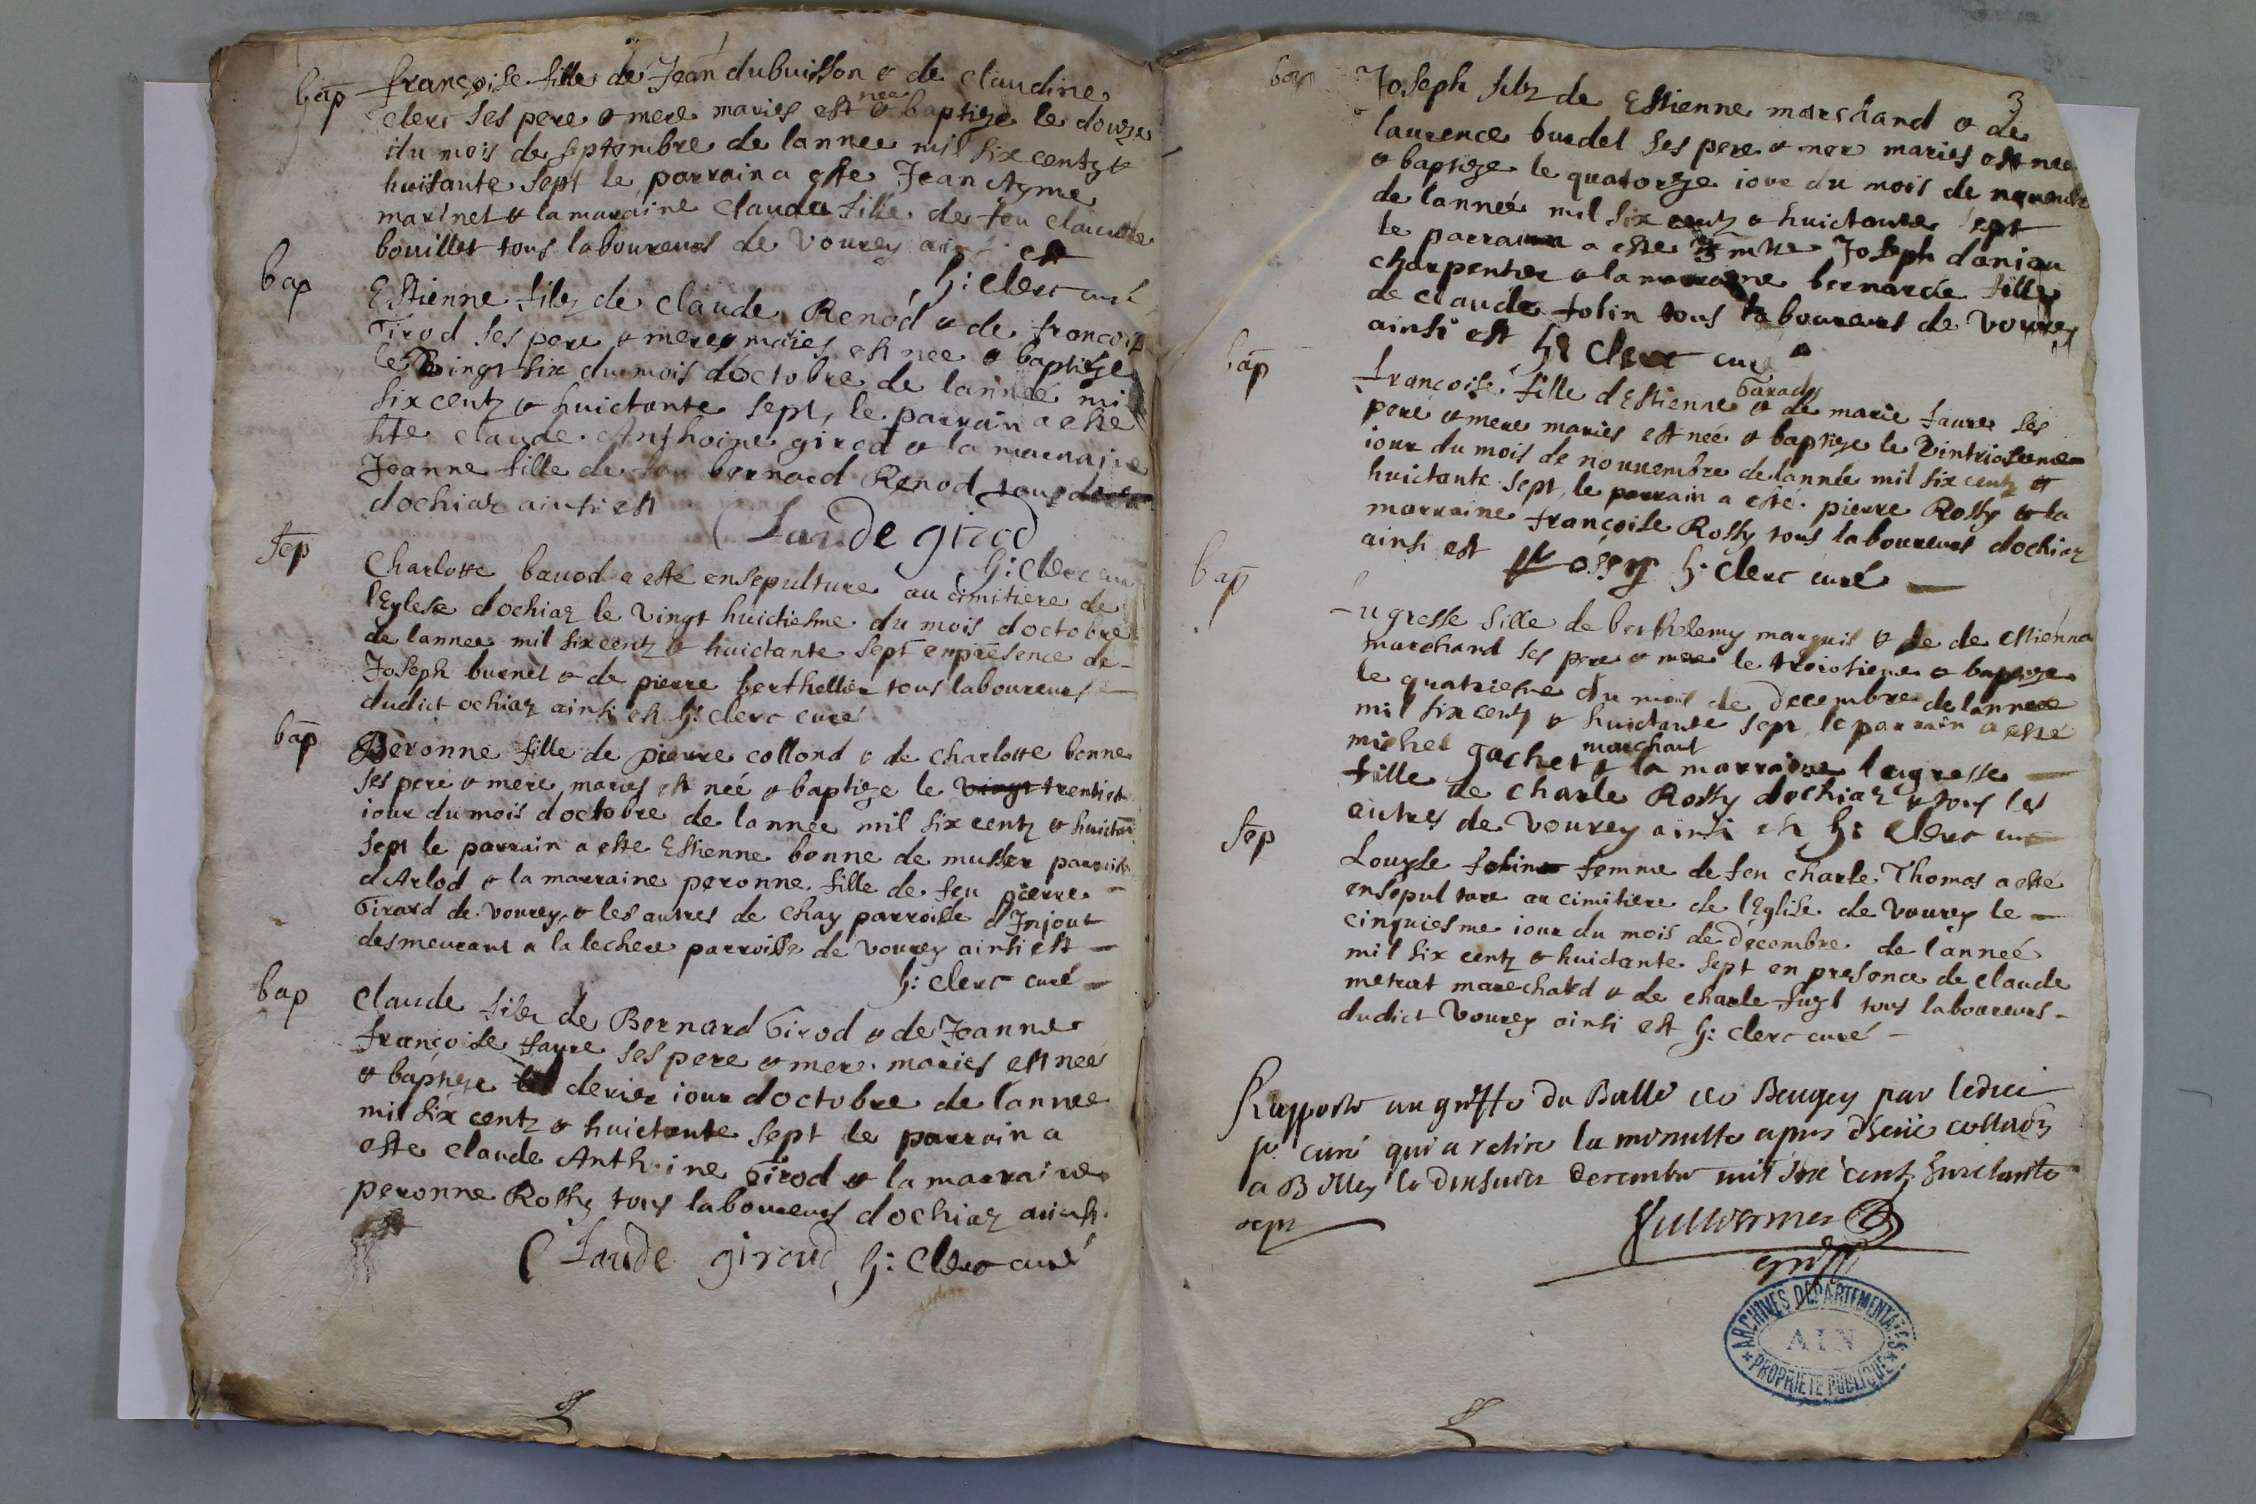 bap françoise fille de Jean dubuisson & de claudine
clerc ses pere & mere maries est née & baptize le douze
du mois de septembre de lannee mil six centz &
huitante sept le parrain a este Jean Ayme
martinet & la maraine claude fille de feu claude
bouillet tous laboureurs de vourey ainsi est
h: clerc curé
bap Estienne filz de claude Renod & de francoise
Girod ses pere & mere maries est nee & baptize
le vingt six du mois doctobre de lannee mil
six centz & huictante sept, le parrain a este
claude Anthoine girod & la marraine
Jeanne fille de feu bernard Renod tous
dochiaz ainsi est
Claude girod
h: clerc curé
sep Charlotte bavod a esté ensepulture au cimitiere de
lEglese dochiaz le vingt huictiesme du mois doctobre
de lannee mil six centz & huictante sept en presence de
Joseph burnet & de pierre berthellier tous laboureurs
dudict ochiaz ainsi est h: clerc curé
bap Peronne fille de pierre collond & de charlotte bonne
ses pere & mere maries est née & baptize le vingt trentiesme
iour du mois doctobre de lannee mil six centz & huictante
sept le parrain a este Estienne bonne de mussel parroisse
dArlod & la marraine peronne fille de feu pierre
Girard de vourey & les autres de chay parroisse dInjout
desmeurant a la lechere parroisse de vourey ainsi est
h: clerc curé
bap claude filz de Bernard Girod & de Jeanne
françoise faure ses pere & mere maries est née
& baptize le denier iour doctobre de lannee
mil six centz & huictante sept le parrain a
este claude Anthoine Girod & la marraine
peronne Rossy tous laboureurs dochiaz ainsi
Claude giroud h: clerc curé
3
bap Joseph filz de Estienne marchand & de
laurence burdel ses pere & mere maries est née
& baptize le quatorze iour du mois de novembre
de lannée mil six centz & huictante sept
le parrain a este Joseph daniau
charpentier & la marraine bernarde fille
de claude tolin tous laboureurs de vourey
ainsi est h: clerc curé
bap françoise fille dEstienne Garady & de marie faure ses
pere & mere maries est née & baptize le vintriosme
iour du mois de nouvembre de lannée mil six centz &
huictante sept, le parrain a esté pierre Rossy & la
marraine françoise Rossy tous laboureurs dochiaz
ainsi est Rossy h: clerc curé
bap Lugresse fille de berthelemy marquis & de de estienna
marchand ses pere & mere le troiosieme & baptize
le quatriesme du mois de decembre de lannee
mil six centz & huictante sept le parrain a esté
michel gachet marchant & la marraine lugresse
fille de charle Rossy dochiaz & tous les
autres de vourey ainsi est h: clerc curé
sep Louyse tolin femme de feu charle Thomas a esté
ensepulture au cimitiere de lEglise de vourey le
cinquiesme iour du mois de decembre de lanneé
mil six centz & huictante sept en presence de claude
metrat marechard & de charle fugl tous laboureurs
dudict vourey ainsi est h: clerc curé
Rapporte au greffe du Ballë de Beugey par ledict
sr curé qui a retire la minutte apres
a Belley le decembre mil six centz huictante
sept
ARCHIVES DEPARTEMENTALES
AIN
PROPRIETE PUBLIQUE